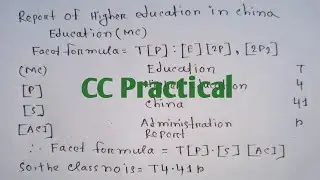 Report of Higher education in china
Education (MC)
Facet formula = T[P]:[E][2P],[2P2]
(MC) Education T
[P] education 4
CC Practical
[S] China 41
[ACI] Administration p
Report
∴ Facet formula = T[P].[S] [ACI]
So, the class no is = T4.41p